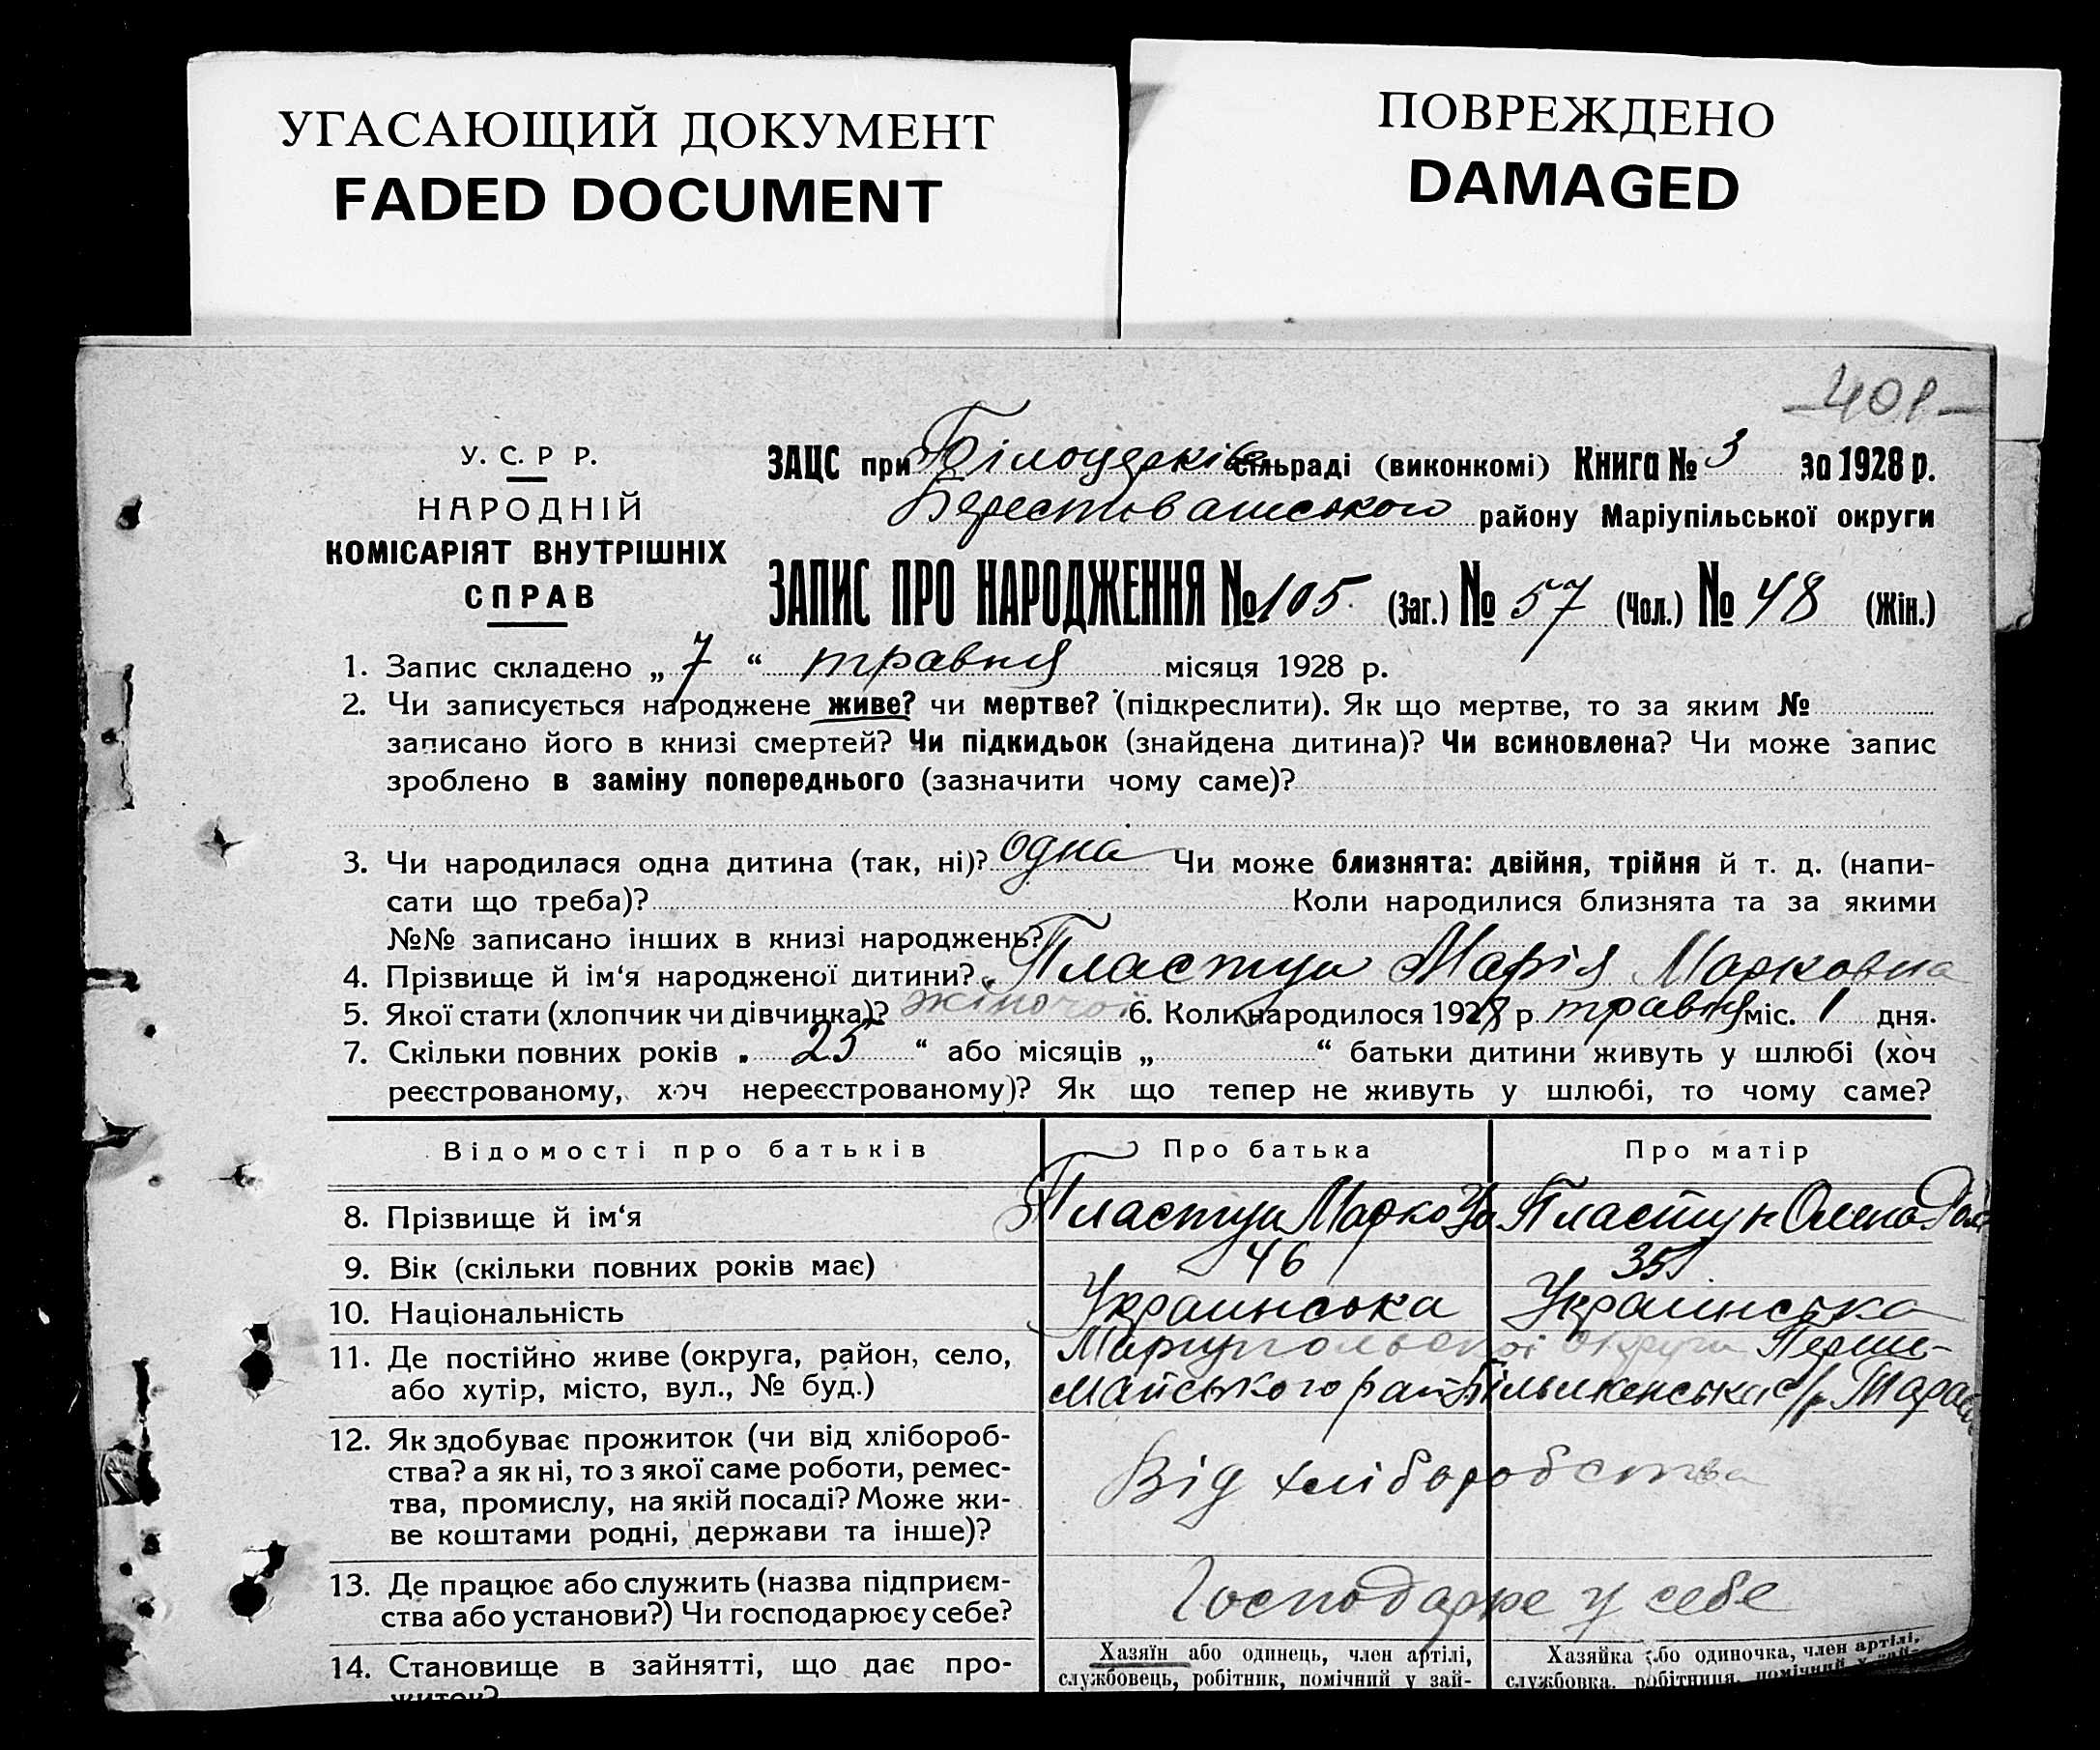 УГАСАЮЩИЙ ДОКУМЕНТ
FADED DOCUMENT
ПОВРЕЖДЕНО
DAMAGED
—401—
У. С. Р Р.
НАРОДНІЙ
КОМІСАРІЯТ ВНУТРІШНІХ
СПРАВ
ЗАЦС при Білоцерків сільраді (виконкомі) Книга № 3 за 1928 р.
району Маріупільської округи
ЗАПИС ПРО НАРОДЖЕННЯ № 105 (Заг.) № 57 (Чол.) № 48 (Жін.)
1. Запис складено „ 7 “ травня місяця 1928 р.
2. Чи записується народжене живе? чи мертве? (підкреслити). Як що мертве, то за яким №
записано його в книзі смертей? Чи підкидьок (знайдена дитина)? Чи всиновлена? Чи може запис
зроблено в заміну попереднього (зазначити чому саме)?
3. Чи народилася одна дитина (так, ні)? одна Чи може близнята: двійня, трійня й т. д. (напи-
сати що треба)? Коли народилися близнята та за якими
№№ записано інших в книзі народжень?
4. Прізвище й ім‘я народженої дитини? Пластун Марія Марковна
5. Якої стати (хлопчик чи дівчинка)? жіночої 6. Коли народилося 1928 р травня міс. 1 дня.
7. Скільки повних років „ 25 “ або місяців „ “ батьки дитини живуть у шлюбі (хоч
реєстрованому, хоч нереєстрованому)? Як що тепер не живуть у шлюбі, то чому саме?
Відомості про батьків Про батька Про матір
8. Прізвище й ім‘я Пластун Марко Пластун Олена
9. Вік (скільки повних років має) 46 35
10. Національність Украинська Украинська
11. Де постійно живе (округа, район, село, округи Перше-
або хутір, місто, вул., № буд.) майського с/р
12. Як здобуває прожиток (чи від хлібороб-
ства? а як ні, то з якої саме роботи, ремес- Від хліборобства
тва, промислу, на якій посаді? Може жи-
ве коштами родні, держави та інше)?
13. Де працює або служить (назва підприєм-
ства або установи?) Чи господарює у себе? Господарює у себе
14. Становище в зайнятті, що дає про-
житок?
Хазяїн або одинець, член артілі,
службовець, робітник, помічний у зай-
Хазяйка або одиночка, член артілі,
службовка, робітниця, помічний у зай-